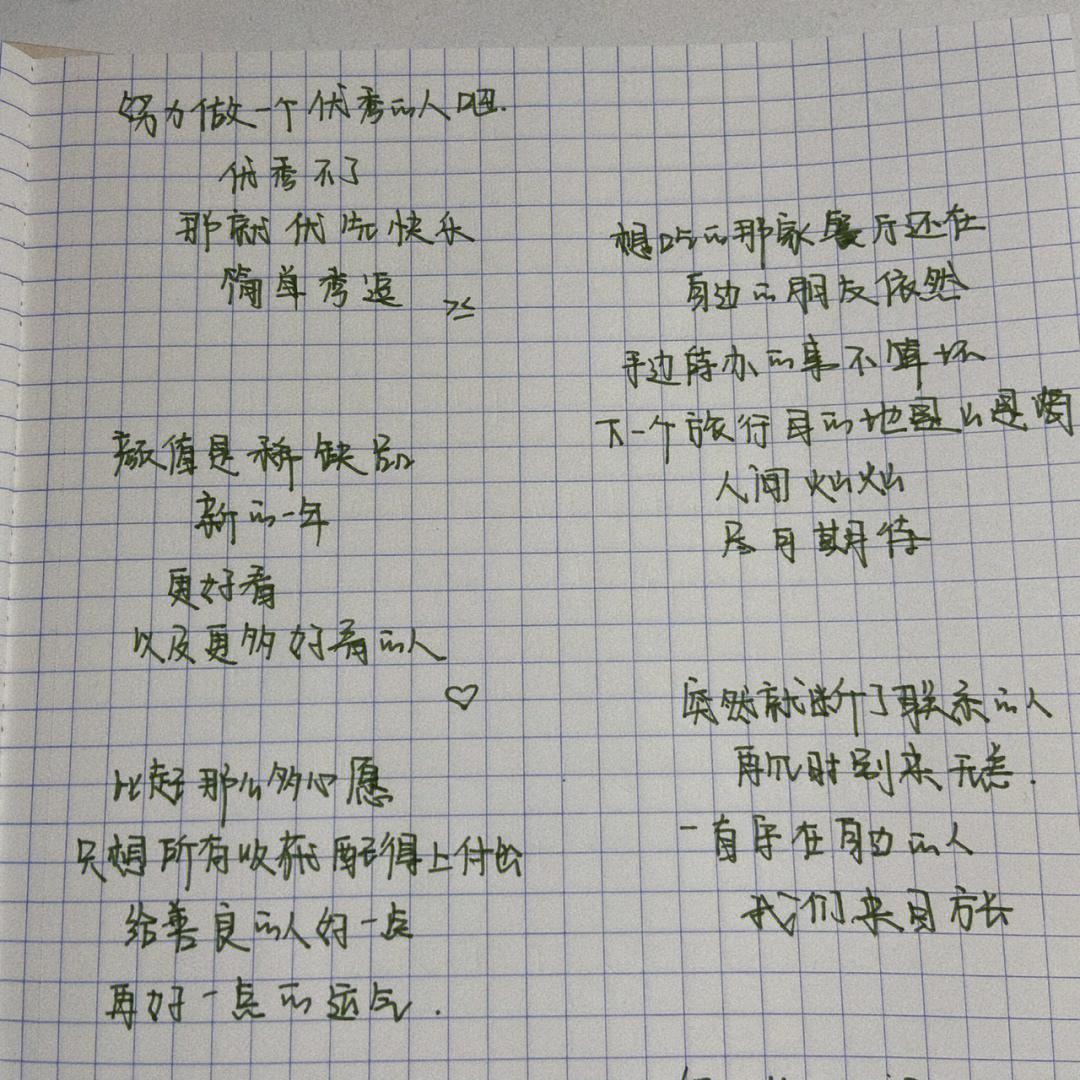 努力做一个优秀的人吧.
优秀不了
那就优先快乐
简单秀逗
颜值是稀缺品
新的一年
更好看
以及更多好看的人
比起那么多心愿
只想所有收获配得上付出
给善良的人好一点
再好一点的运气.
想吃的那家餐厅还在
身边的朋友依然
手边待办的事不算坏
下一个旅行目的地
人间灿灿
尽可期待
突然就断了联系的人
再见时别来无恙.
一直守在身边的人
我们来日方长